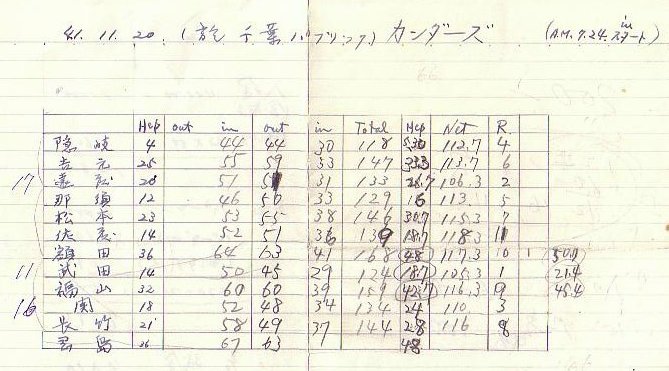 41.11.20 (於 千葉パブリック) カンダーズ (A.M. 9.24. in スタート)
Hcp out in out in Total Hcp Net R.
隠岐 4 44 44 30 118 5.30 112.7 4
吉元 25 55 59 33 147 33.3 113.7 6
17 20 51 51 31 133 26.7 106.3 2
那須 12 46 50 33 129 16 113. 5
松本 23 53 55 38 146 30.7 115.3 7
14 52 51 36 139 18.7 118.3 11
額田 36 64 63 41 168 48 117.3 10 1 50.7
11 武田 14 50 45 29 124 18.7 105.3 1 21.4
福山 32 60 60 39 159 42.7 116.3 9 45.4
16 関 18 52 48 34 134 24 110 3
長竹 21 58 49 37 144 28 116 8
君島 36 67 63 48